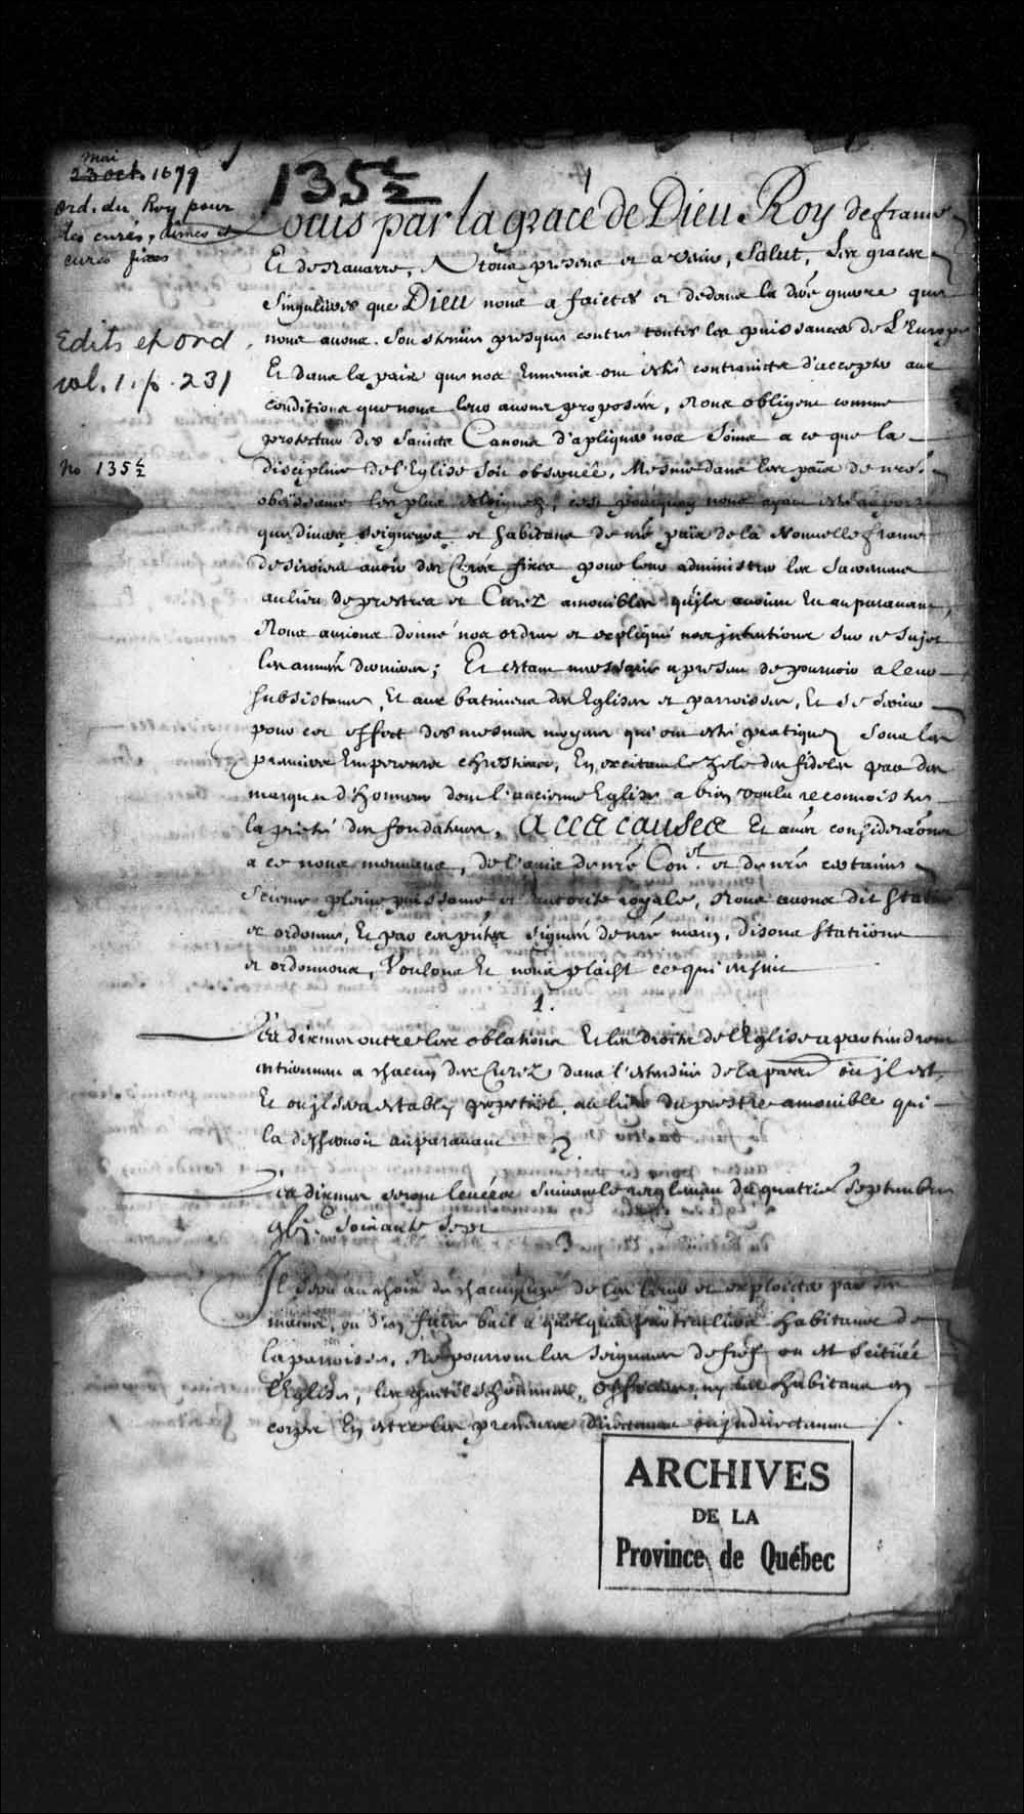 mai
23 oct. 1679
ord. du Roy pour
les curés, dîmes et
cures fixes
Edits et ord.
vol. 1. p. 231
No 135½
135½
Louis par la grace de Dieu Roy de france
Et de Navarre, A tous presens et a venir, Salut, Les graces
singulieres que Dieu nous a faictes et dedans la dre guerre que
nous avons soustenüe presque contre toutes les puissances de L'Europe
Et dans la paix que nos Ennemis ont esté contraincts d'accepter aux
conditions que nous leur avons proposées, Nous obligent comme
protecteur des Saincts Canons d'apliquer nos soins a ce que la
discipline de l'Eglise soit observée, Mesme dans les païs de nre
obeissance les plus esloignez, c'est pourquoy nous ayant esté
que divers seigneurs et habitans de nre païs de la Nouvelle france
desiroient avoir des Curés fixes pour leur administrer les Sacremens
au lieu de prestres et Curez amouibles qu'ils avoient Eu auparavant,
Nous aurions donné nos ordres et expliqué nos intentions sur ce sujet
les années dernieres; Et estant necessaire a present de pourvoir a leur
subsistance, Et aux batimens des Eglises et parroisses, Et de
pour cet effect des mesmes moyens qui ont esté pratiquez sous les
premiers Empereurs chrestiens, En excitant le zele des fideles par des
marques d'honneur dont l'ancienne Eglise a bien voulu reconnoistre
la pieté des fondateurs, A ces causes Et autres considerâons
a ce nous mouvans, de l'avis de nre Conel et de nre certaine
science pleine puissance et autorité royale, Nous avons dit statué
et ordonné, Et par ces pntes signées de nre main, disons statüons
et ordonnons, Voulons Et nous plaist ce qui ensuit
1.
Les dixmes outre les oblations Et les droits de l'Eglise apartiendront
entierement a chacun des Curez dans l'estendüe de la parre où il est
Et ou il sera estably perpetuel, au lieu du prestre amouible qui
la desservoit auparavant
2.
Les dixmes seront levées suivant le reglement du quatrie Septembre
gbj.c soixante sept
3
Il sera au choix de chacun curé de les lever et exploicter par ses
mains, ou d'en faire bail a quelques particuliers habitans de
la parroisse, Ne pourront les seigneurs de fief ou est scituée
l'Eglise, les gentilshommes, officiers, ny les habitans en
corps En estre les preneurs directement ou indirectement /.
ARCHIVES
DE LA
Province de Québec